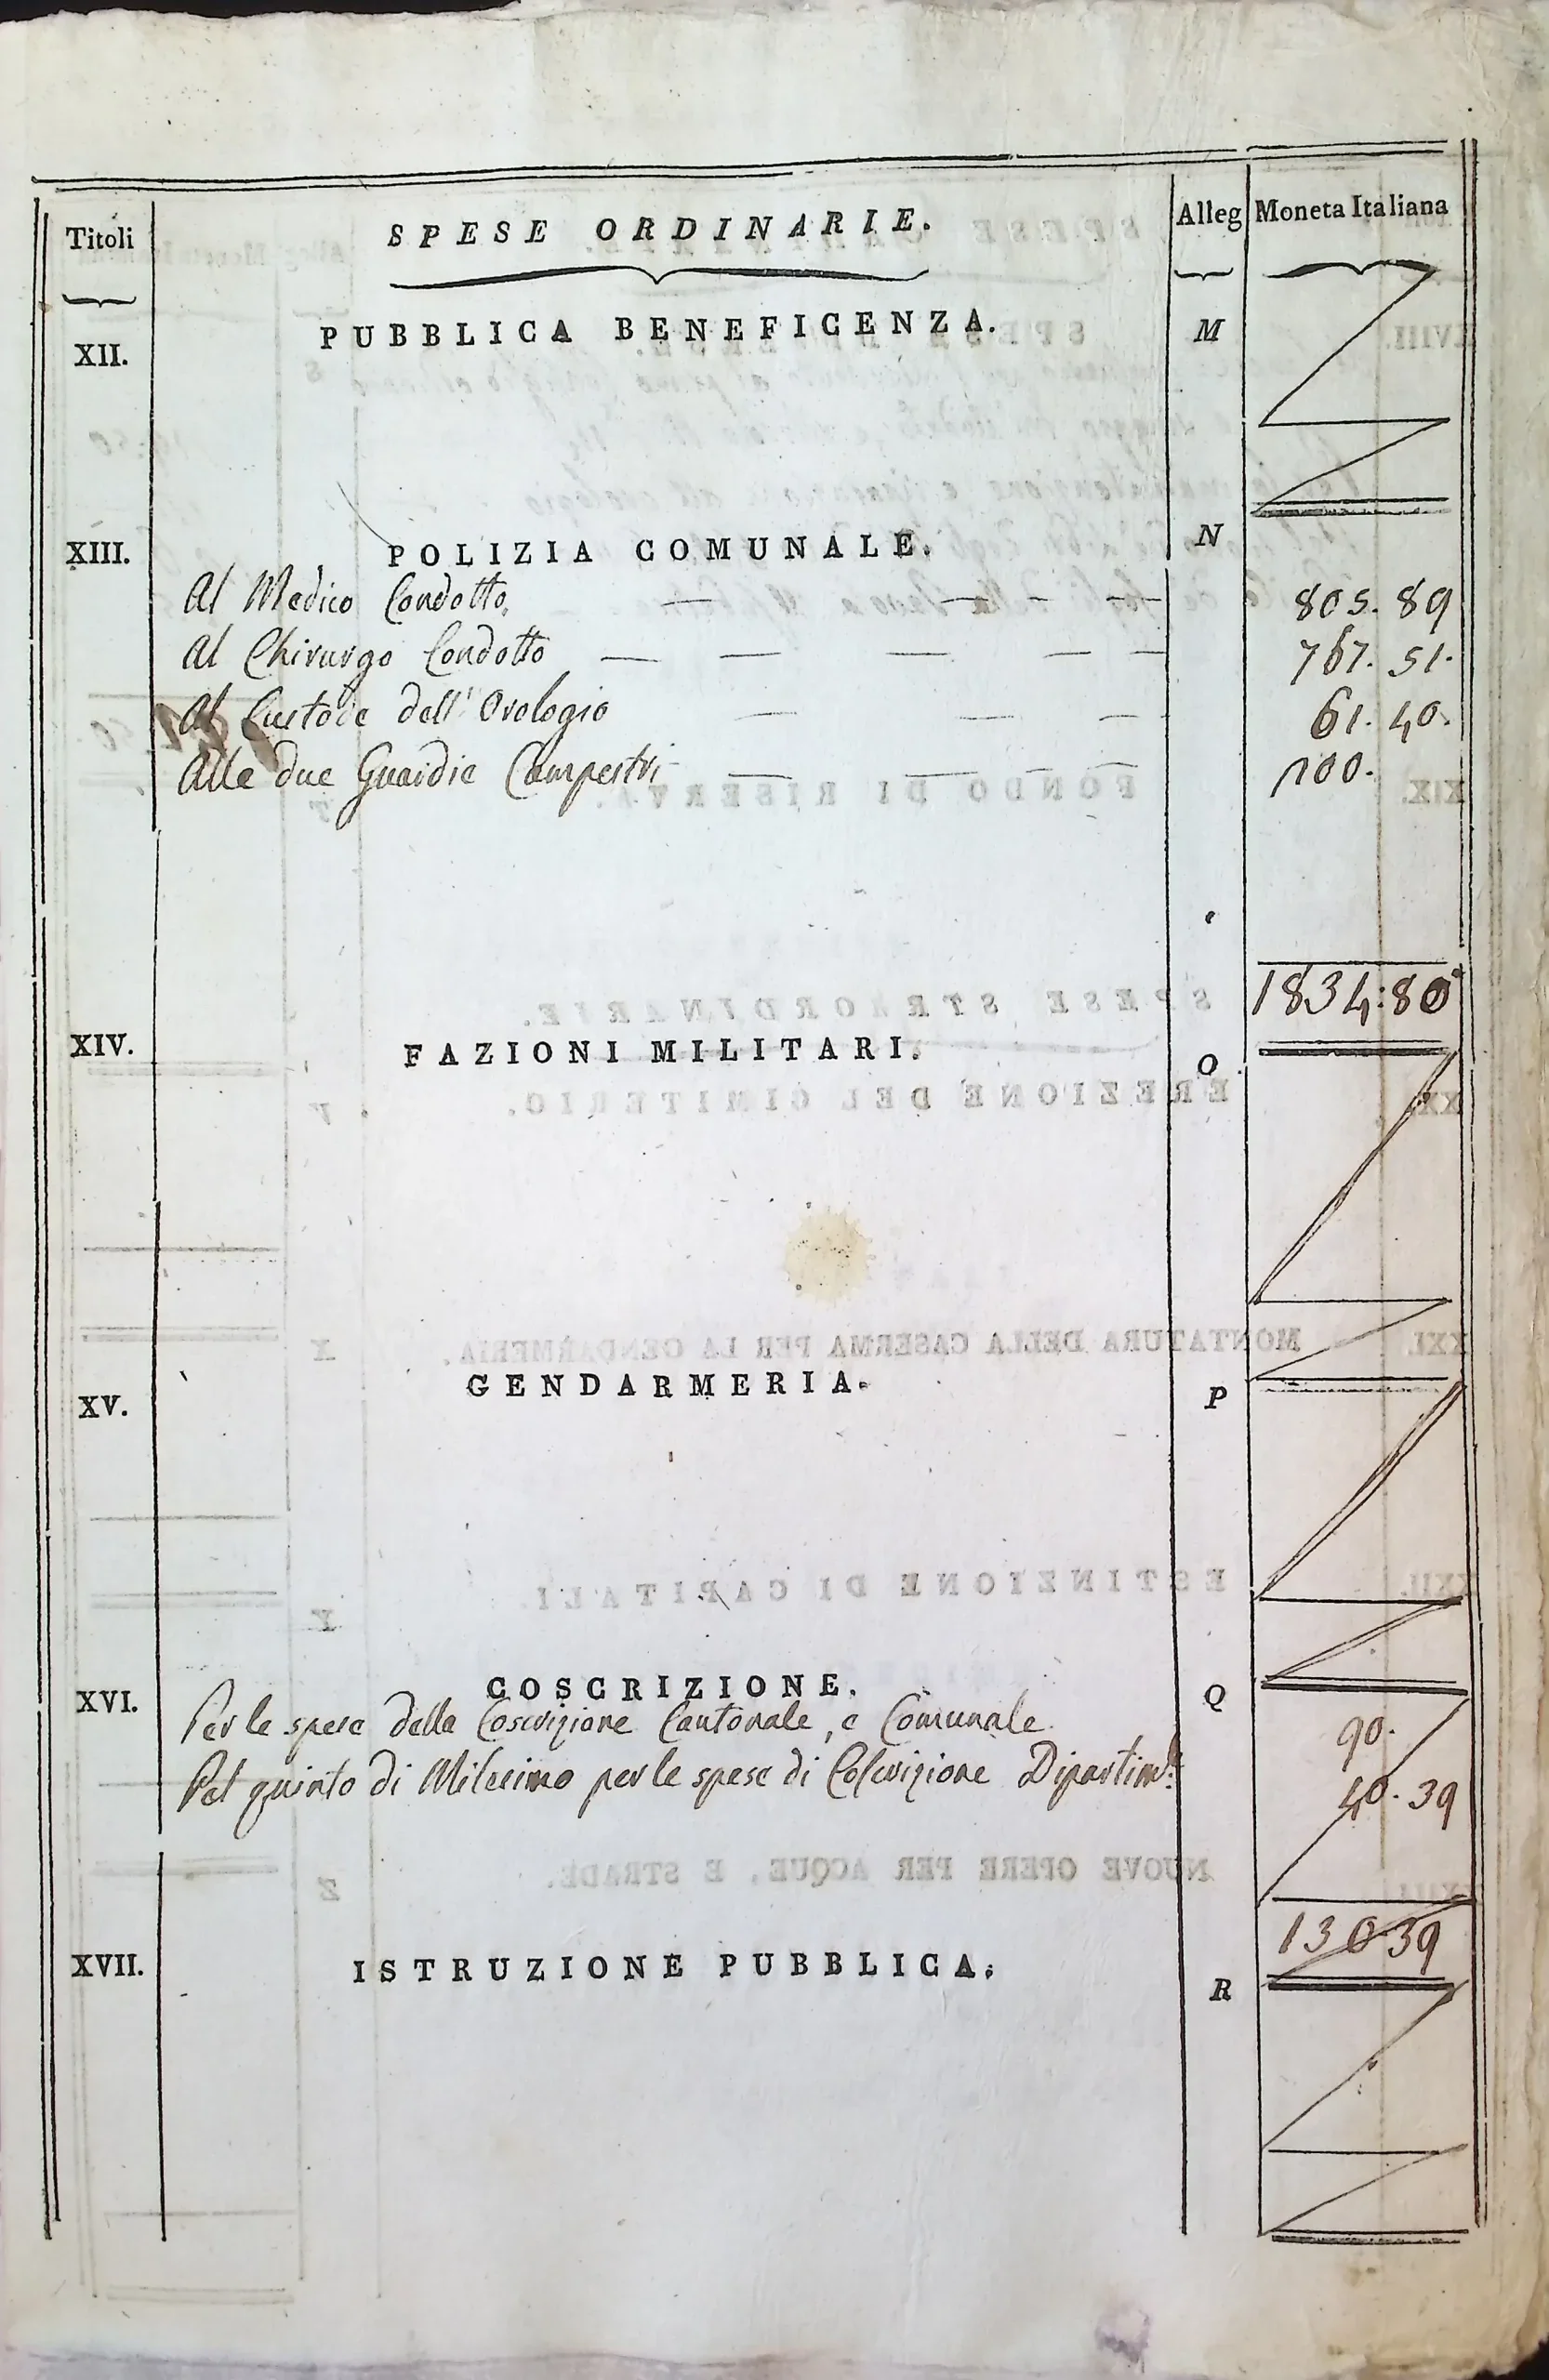 Titoli SPESE ORDINARIE. Alleg Moneta Italiana
XII. PUBBLICA BENEFICENZA. M
XIII. POLIZIA COMUNALE. N
Al Medico Condotto 805. 89
Al Chirurgo Condotto 767. 51.
Al Custode dell'Orologio 61. 40.
Alle due Guardie Campestri 200.
1834:80
XIV. FAZIONI MILITARI. O
XV. GENDARMERIA. P
XVI. COSCRIZIONE. Q
Per le spese della Coscrizione Cantonale, e Comunale. 90.
Pel quinto di Milesimo per le spese di Coscrizione Dipartim.: 40. 39
130 39
XVII. ISTRUZIONE PUBBLICA. R